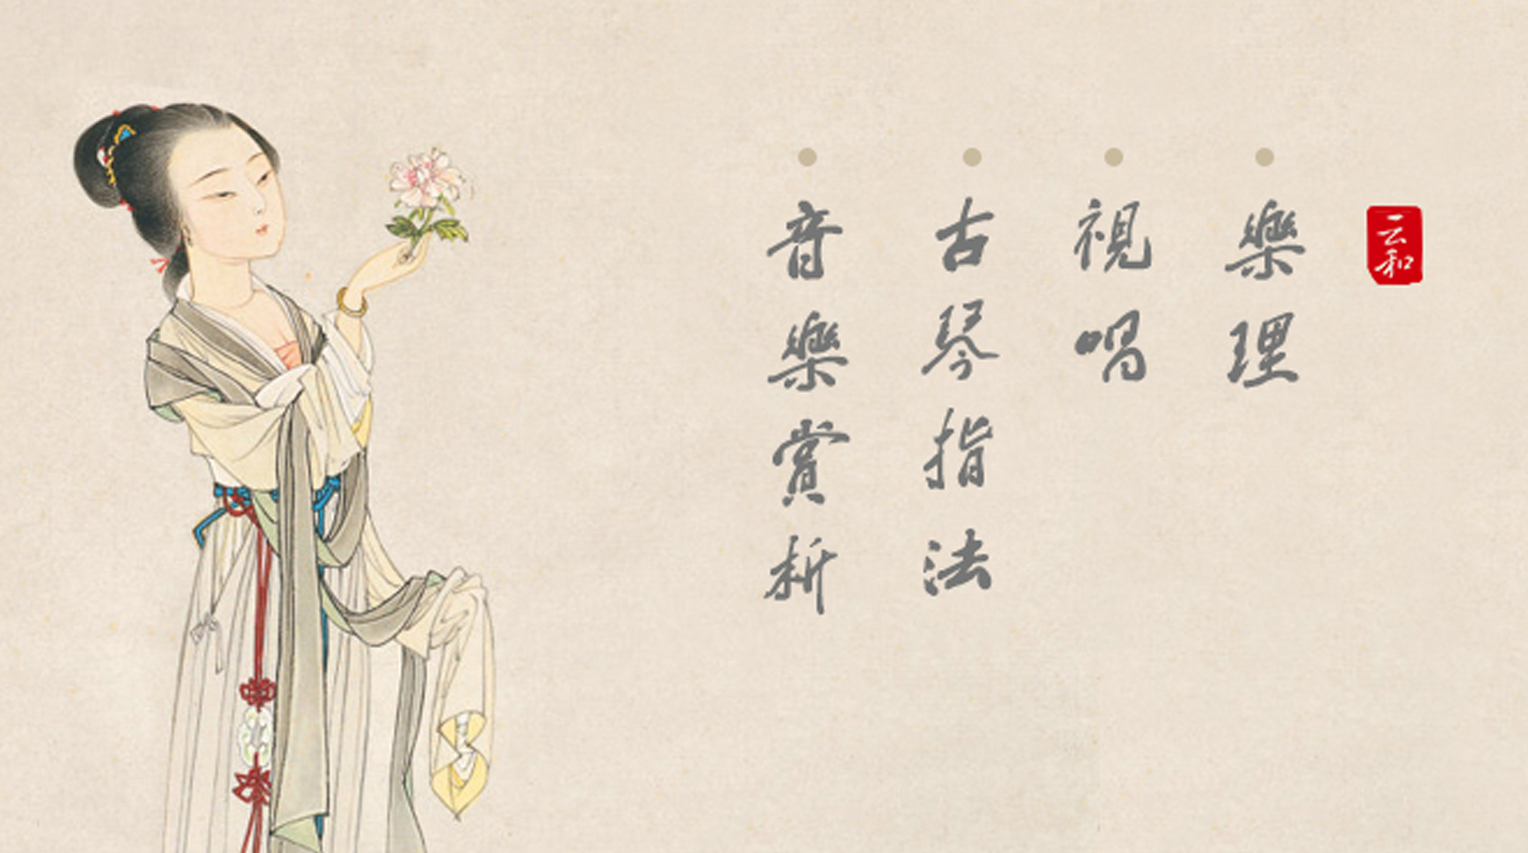 云和
樂理
視唱
古琴指法
音樂賞析